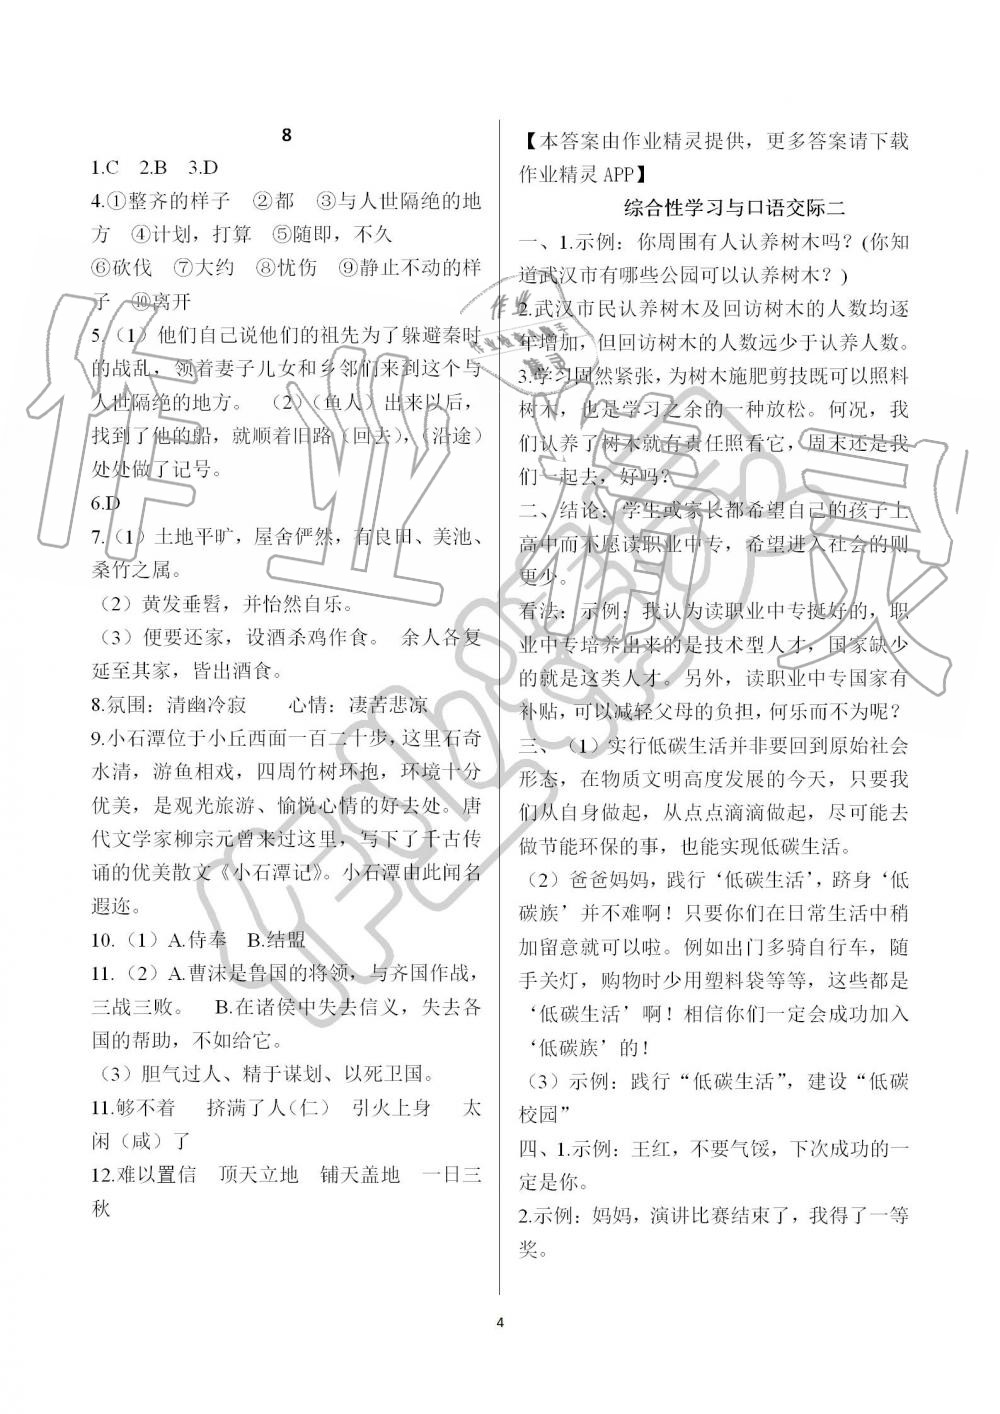 8
1.C 2.B 3.D
4.①整齐的样子 ②都 ③与人世隔绝的地
方 ④计划，打算 ⑤随即，不久
⑥砍伐 ⑦大约 ⑧忧伤 ⑨静止不动的样
子 ⑩离开
5.（1）他们自己说他们的祖先为了躲避秦时
的战乱，领着妻子儿女和乡邻们来到这个与
人世隔绝的地方。 （2）（鱼人）出来以后，
找到了他的船，就顺着旧路（回去），（沿途）
处处做了记号。
6.D
7.（1）土地平旷，屋舍俨然，有良田、美池、
桑竹之属。
（2）黄发垂髫，并怡然自乐。
（3）便要还家，设酒杀鸡作食。 余人各复
延至其家，皆出酒食。
8.氛围：清幽冷寂 心情：凄苦悲凉
9.小石潭位于小丘西面一百二十步，这里石奇
水清，游鱼相戏，四周竹树环抱，环境十分
优美，是观光旅游、愉悦心情的好去处。唐
代文学家柳宗元曾来过这里，写下了千古传
诵的优美散文《小石潭记》。小石潭由此闻名
遐迩。
10.（1）A.侍奉 B.结盟
11.（2）A.曹沫是鲁国的将领，与齐国作战，
三战三败。 B.在诸侯中失去信义，失去各
国的帮助，不如给它。
（3）胆气过人、精于谋划、以死卫国。
11.够不着 挤满了人（仁） 引火上身 太
闲（咸）了
12.难以置信 顶天立地 铺天盖地 一日三
秋
【本答案由作业精灵提供，更多答案请下载
作业精灵 APP】
综合性学习与口语交际二
一、1.示例：你周围有人认养树木吗？(你知
道武汉市有哪些公园可以认养树木？)
2.武汉市民认养树木及回访树木的人数均逐
年增加，但回访树木的人数远少于认养人数。
3.学习固然紧张，为树木施肥剪技既可以照料
树木，也是学习之余的一种放松。何况，我
们认养了树木就有责任照看它，周末还是我
们一起去，好吗？
二、结论：学生或家长都希望自己的孩子上
高中而不愿读职业中专，希望进入社会的则
更少。
看法：示例：我认为读职业中专挺好的，职
业中专培养出来的是技术型人才，国家缺少
的就是这类人才。另外，读职业中专国家有
补贴，可以减轻父母的负担，何乐而不为呢？
三、（1）实行低碳生活并非要回到原始社会
形态，在物质文明高度发展的今天，只要我
们从自身做起，从点点滴滴做起，尽可能去
做节能环保的事，也能实现低碳生活。
（2）爸爸妈妈，践行‘低碳生活’，跻身‘低
碳族’并不难啊！只要你们在日常生活中稍
加留意就可以啦。例如出门多骑自行车，随
手关灯，购物时少用塑料袋等等，这些都是
‘低碳生活’啊！相信你们一定会成功加入
‘低碳族’的！
（3）示例：践行“低碳生活”，建设“低碳
校园”
四、1.示例：王红，不要气馁，下次成功的一
定是你。
2.示例：妈妈，演讲比赛结束了，我得了一等
奖。
4
作业精灵